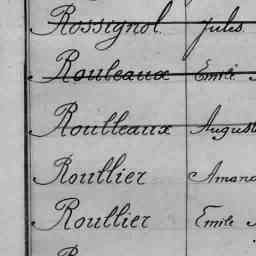 Rossignol Jules
Rouleaux Emile
Roulleaux August
Roullier Amand
Roullier Emile